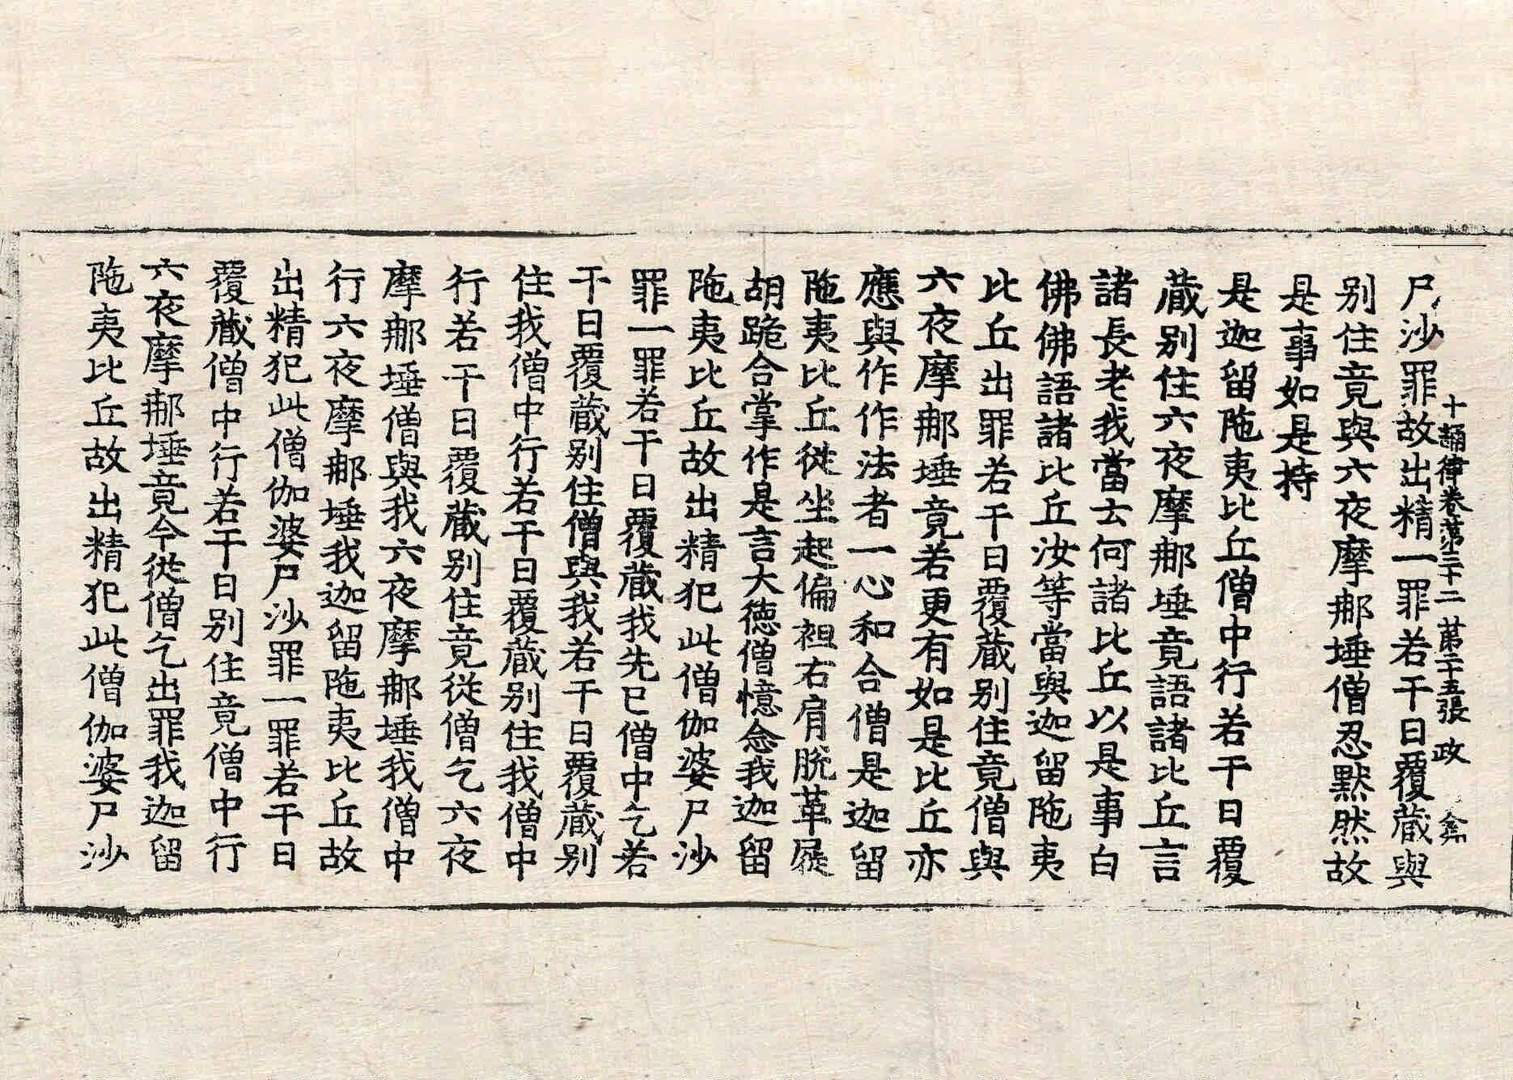 十誦律卷第三十二 第二十五張 政
尸沙罪故出精一罪若干日覆藏與
別住竟與六夜摩郍埵僧忍默然故
是事如是持
是迦留陁夷比丘僧中行若干日覆
藏別住六夜摩郍埵竟語諸比丘言
諸長老我當云何諸比丘以是事白
佛佛語諸比丘汝等當與迦留陁夷
比丘出罪若干日覆藏別住竟僧與
六夜摩郍埵竟若更有如是比丘亦
應與作作法者一心和合僧是迦留
陁夷比丘從坐起偏袒右肩脫革屣
胡跪合掌作是言大德僧憶念我迦留
陁夷比丘故出精犯此僧伽婆尸沙
罪一罪若干日覆藏我先已僧中乞若
干日覆藏別住僧與我若干日覆藏別
住我僧中行若干日覆藏別住我僧中
行若干日覆藏別住竟從僧乞六夜
摩郍埵僧與我六夜摩郍埵我僧中
行六夜摩郍埵我迦留陁夷比丘故
出精犯此僧伽婆尸沙罪一罪若干日
覆藏僧中行若干日別住竟僧中行
六夜摩郍埵竟今從僧乞出罪我迦留
陁夷比丘故出精犯此僧伽婆尸沙